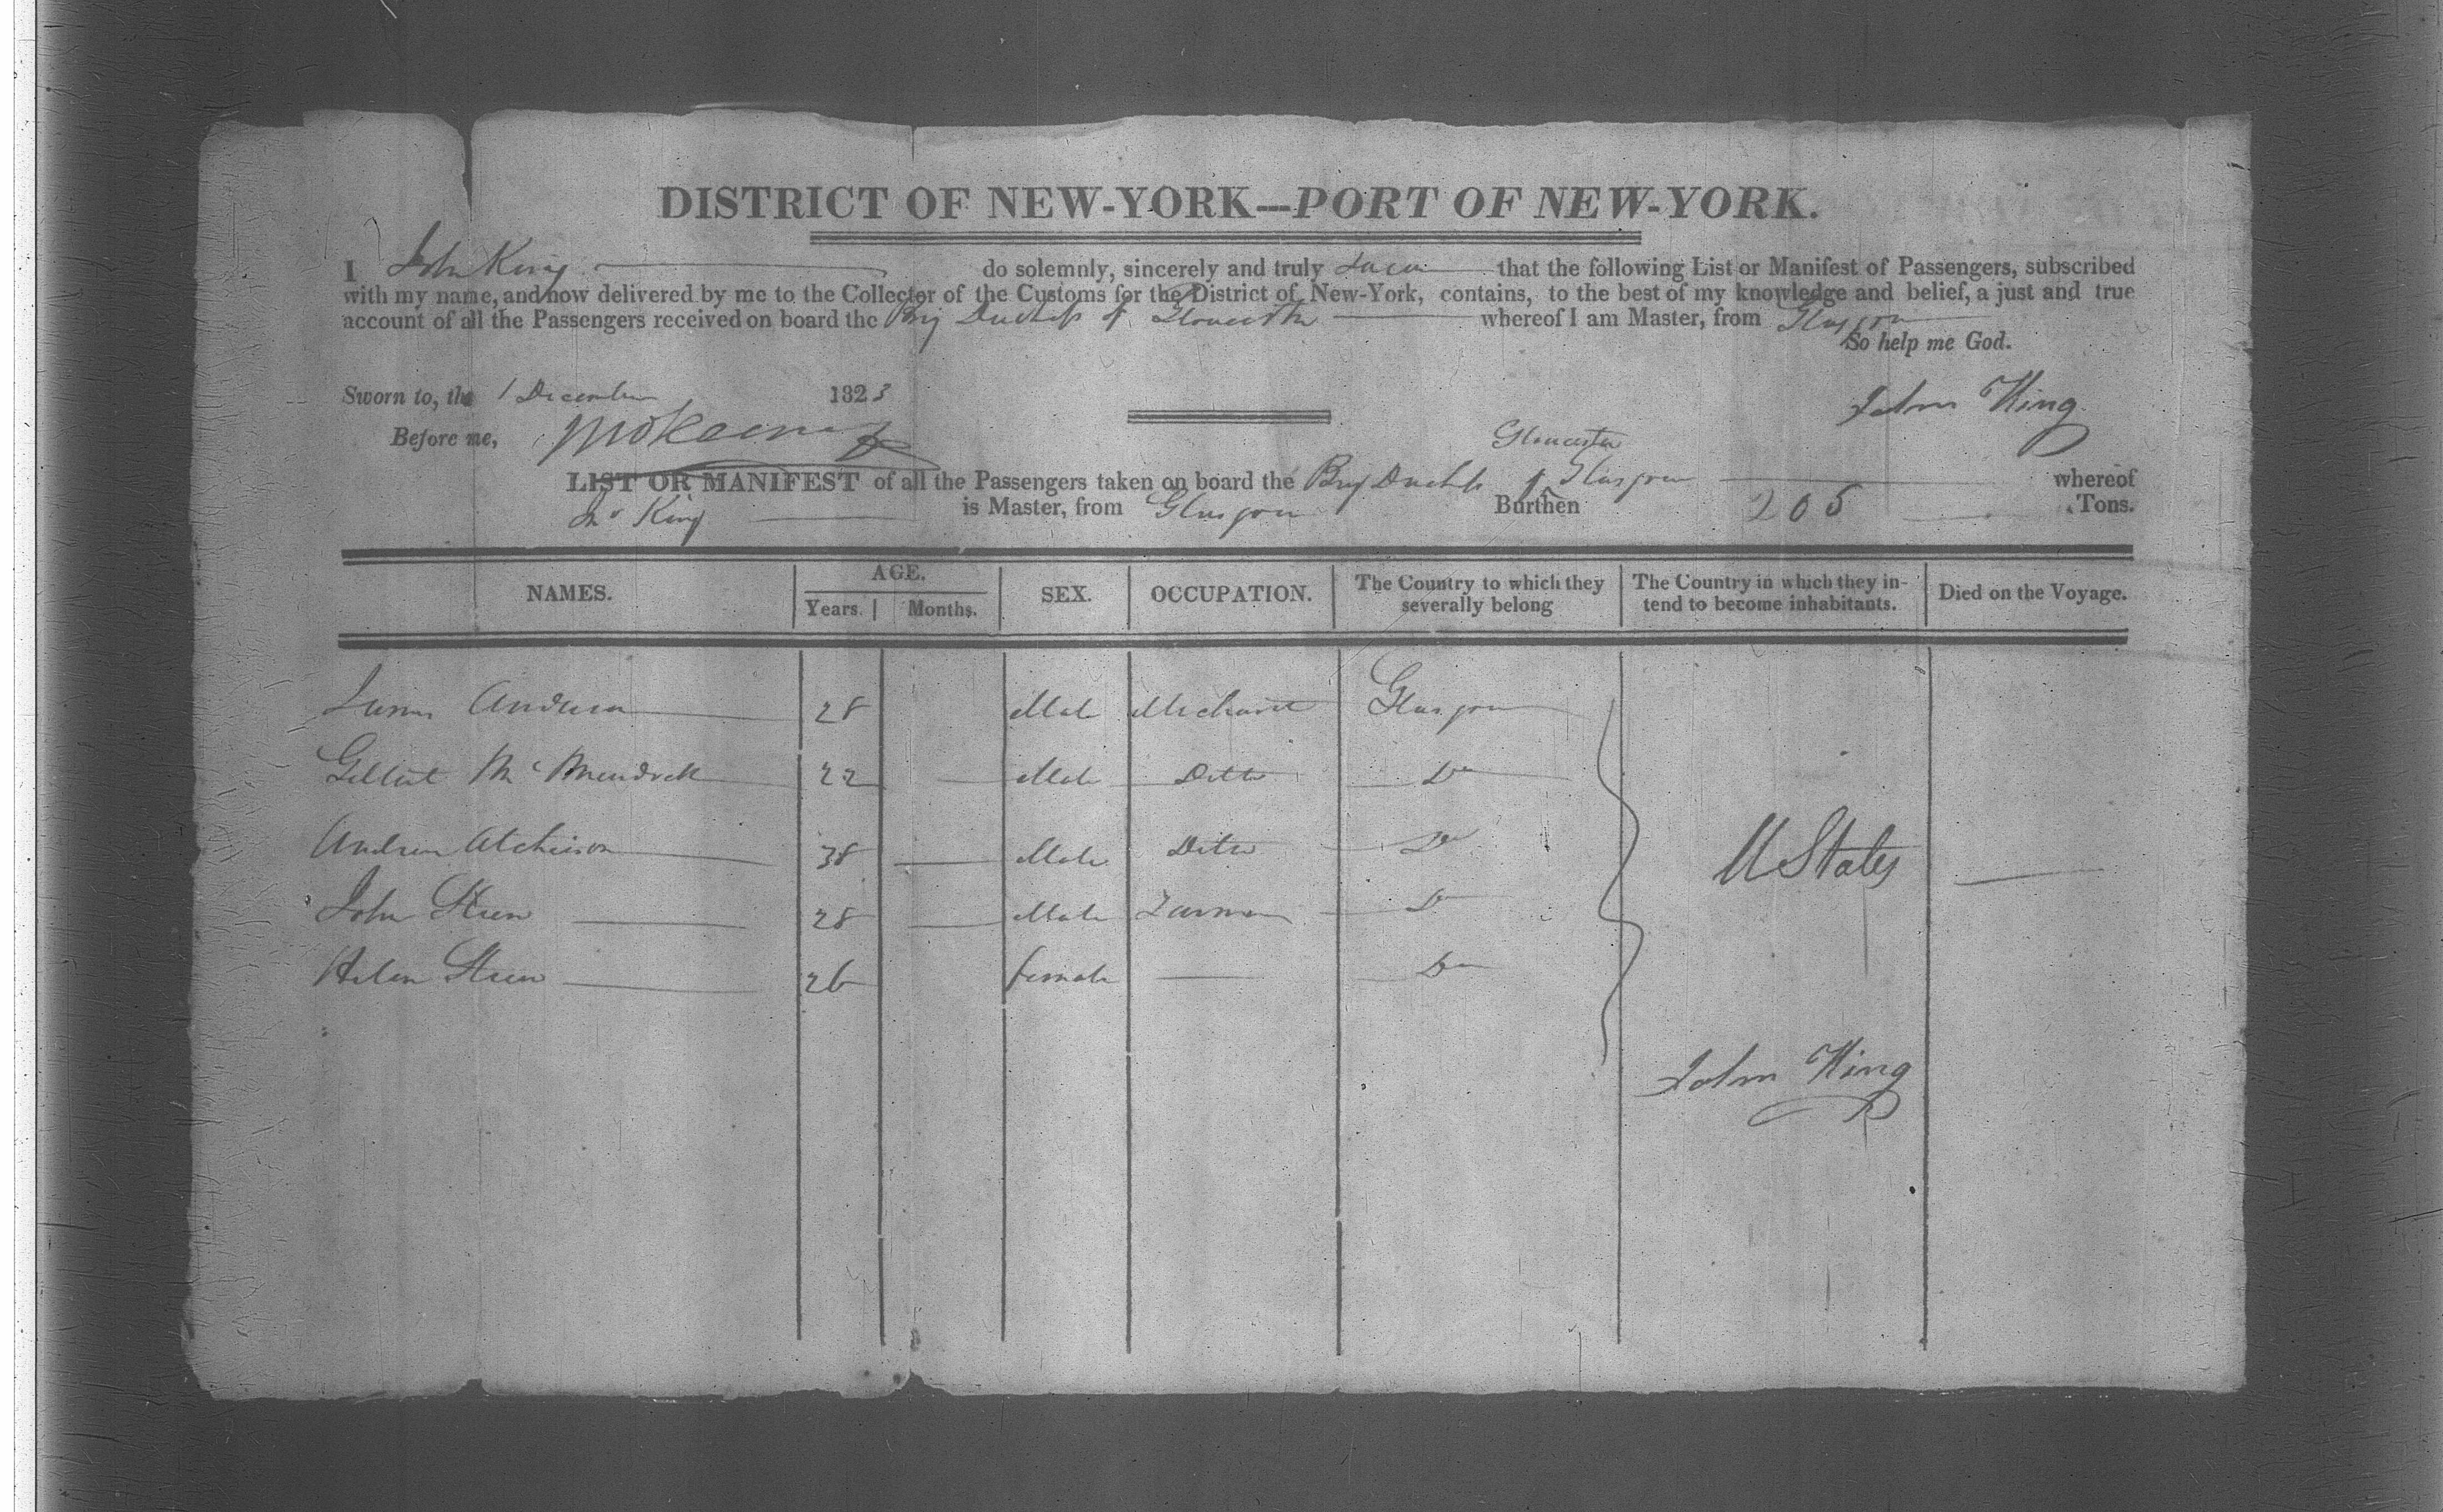 DISTRICT OF NEW-YORK—PORT OF NEW-YORK.
I John King do solemnly, sincerely and truly swear that the following List or Manifest of Passengers, subscribed
with my name, and now delivered by me to the Collector of the Customs for the District of New-York, contains, to the best of my knowledge and belief, a just and true
account of all the Passengers received on board the Brig Duchess of Gloucester whereof I am Master, from Glasgow
So help me God.
Sworn to, the 1 December 1823
John King
Before me,
Gloucester
LIST OR MANIFEST of all the Passengers taken on board the Brig Duchess of Glasgow whereof
Jno King is Master, from Glasgow Burthen 205 Tons.
NAMES. AGE. Years. Months. SEX. OCCUPATION. The Country to which they severally belong The Country in which they intend to become inhabitants. Died on the Voyage.
James Anderson 28 Male Merchant Glasgow
Gilbert 22 Male Ditto Do
Andrew Atcheson 38 Male Ditto Do
U States
John Steen 28 Male Farmer Do
Helen Steen 26 female Do
John King